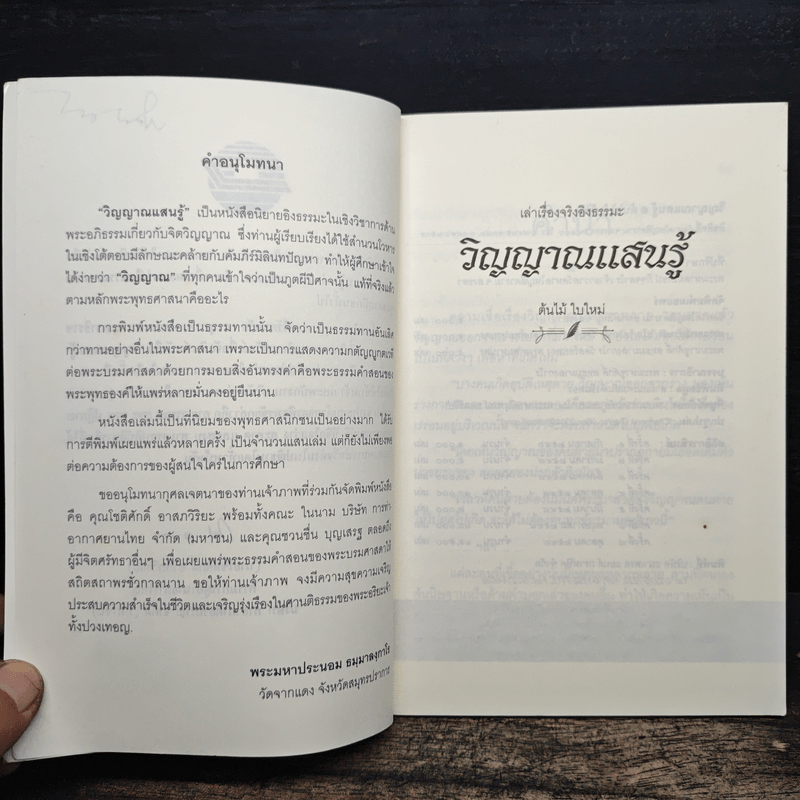 คำอนุโมทนา
"วิญญาณแสนรู้" เป็นหนังสือนิยายอิงธรรมะในเชิงวิชาการด้าน
พระอภิธรรมเกี่ยวกับจิตวิญญาณ ซึ่งท่านผู้เรียบเรียงได้ใช้สำนวนโวหาร
ในเชิงโต้ตอบมีลักษณะคล้ายกับคัมภีร์มิลินทปัญหา ทำให้ผู้ศึกษาเข้าใจ
ได้ง่ายว่า "วิญญาณ" ที่ทุกคนเข้าใจว่าเป็นภูตผีปีศาจนั้น แท้ที่จริงแล้ว
ตามหลักพระพุทธศาสนาคืออะไร
การพิมพ์หนังสือเป็นธรรมทานนั้น จัดว่าเป็นธรรมทานอันเลิศ
กว่าทานอย่างอื่นในพระศาสนา เพราะเป็นการแสดงความกตัญญูกตเวที
ต่อพระบรมศาสดาด้วยการมอบสิ่งอันทรงค่าคือพระธรรมคำสอนของ
พระพุทธองค์ให้แพร่หลายมั่นคงอยู่ยืนนาน
หนังสือเล่มนี้เป็นที่นิยมของพุทธศาสนิกชนเป็นอย่างมาก ได้รับ
การตีพิมพ์เผยแพร่แล้วหลายครั้ง เป็นจำนวนแสนเล่ม แต่ก็ยังไม่เพียงพอ
ต่อความต้องการของผู้สนใจใคร่ในการศึกษา
ขออนุโมทนากุศลเจตนาของท่านเจ้าภาพที่ร่วมกันจัดพิมพ์หนังสือ
คือ คุณโชติศักดิ์ อาสภวิริยะ พร้อมทั้งคณะ ในนาม บริษัท การท่า
อากาศยานไทย จำกัด (มหาชน) และคุณชวนชื่น บุญเสรฐ ตลอดถึง
ผู้มีจิตศรัทธาอื่นๆ เพื่อเผยแพร่พระธรรมคำสอนของพระบรมศาสดาให้
สถิตสถาพรชั่วกาลนาน ขอให้ท่านเจ้าภาพ จงมีความสุขความเจริญ
ประสบความสำเร็จในชีวิตและเจริญรุ่งเรืองในศานติธรรมของพระอริยะเจ้า
ทั้งปวงเทอญ.
พระมหาประนอม ธมฺมาลงฺกาโร
วัดจากแดง จังหวัดสมุทรปราการ
เล่าเรื่องจริงอิงธรรมะ
วิญญาณแสนรู้
ต้นไม้ ใบใหม่